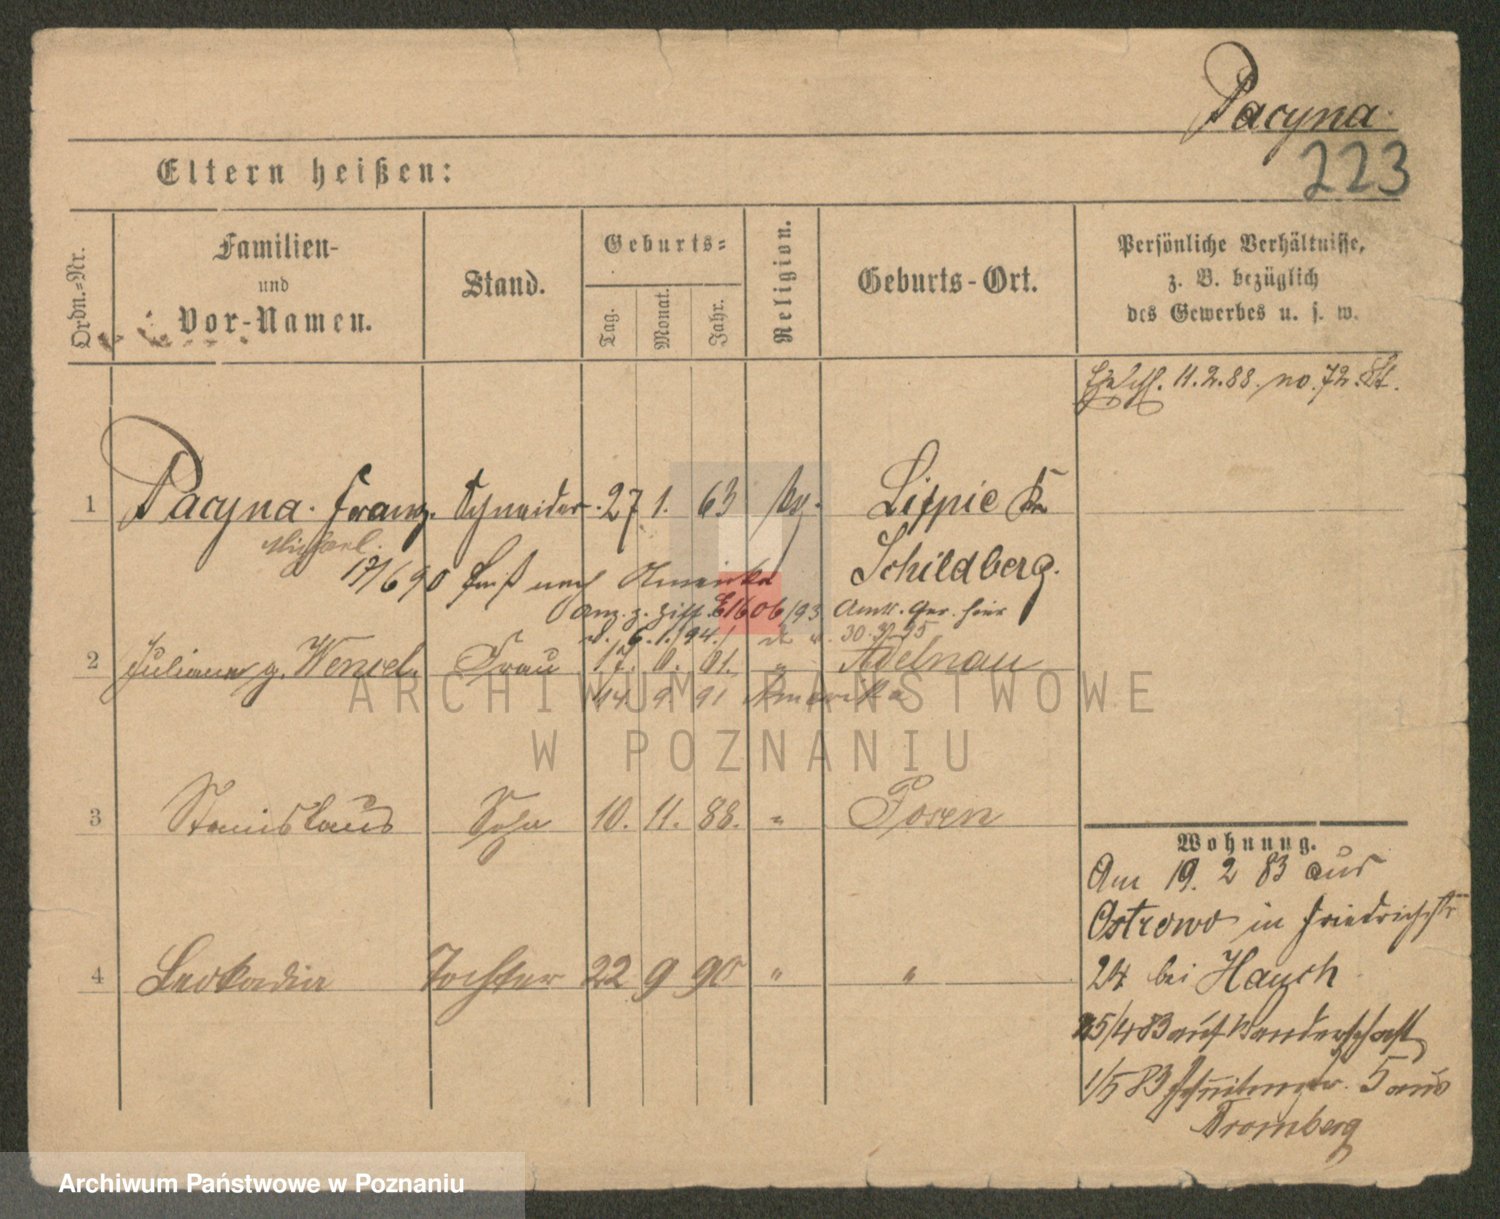 Pacyna.
223
Eltern heißen:
Ordn.-Nr.
Familien-
und
Vor-Namen.
Stand.
Geburts-
Tag.
Monat.
Jahr.
Religion.
Geburts-Ort.
Persönliche Verhältnisse,
z. B. bezüglich
des Gewerbes u. s. w.
11.2.88. no. 72.
1 Pacyna. Franz. Schneider. 27 1. 63 Lippie Kr.
Michael. Schildberg.
17/6 90 nach Amerika
Anz. z. E 1606/93 Amtsger. hier
6.1.94.
2 Juliana g. Wenzel. Frau 17. 6. 61. " Adelnau
14. 9. 91 Amerika
3 Stanislaus Sohn 10. 11. 88. " Posen
4 Leokadia Tochter 22 9 90 " "
Wohnung.
Am 19. 2 83 aus
Ostrowo in Friedrichstr
24 bei Haych
25/4 83 auf Wanderschaft
1/5 83 5 aus
Bromberg
ARCHIWUM PAŃSTWOWE
W POZNANIU
Archiwum Państwowe w Poznaniu